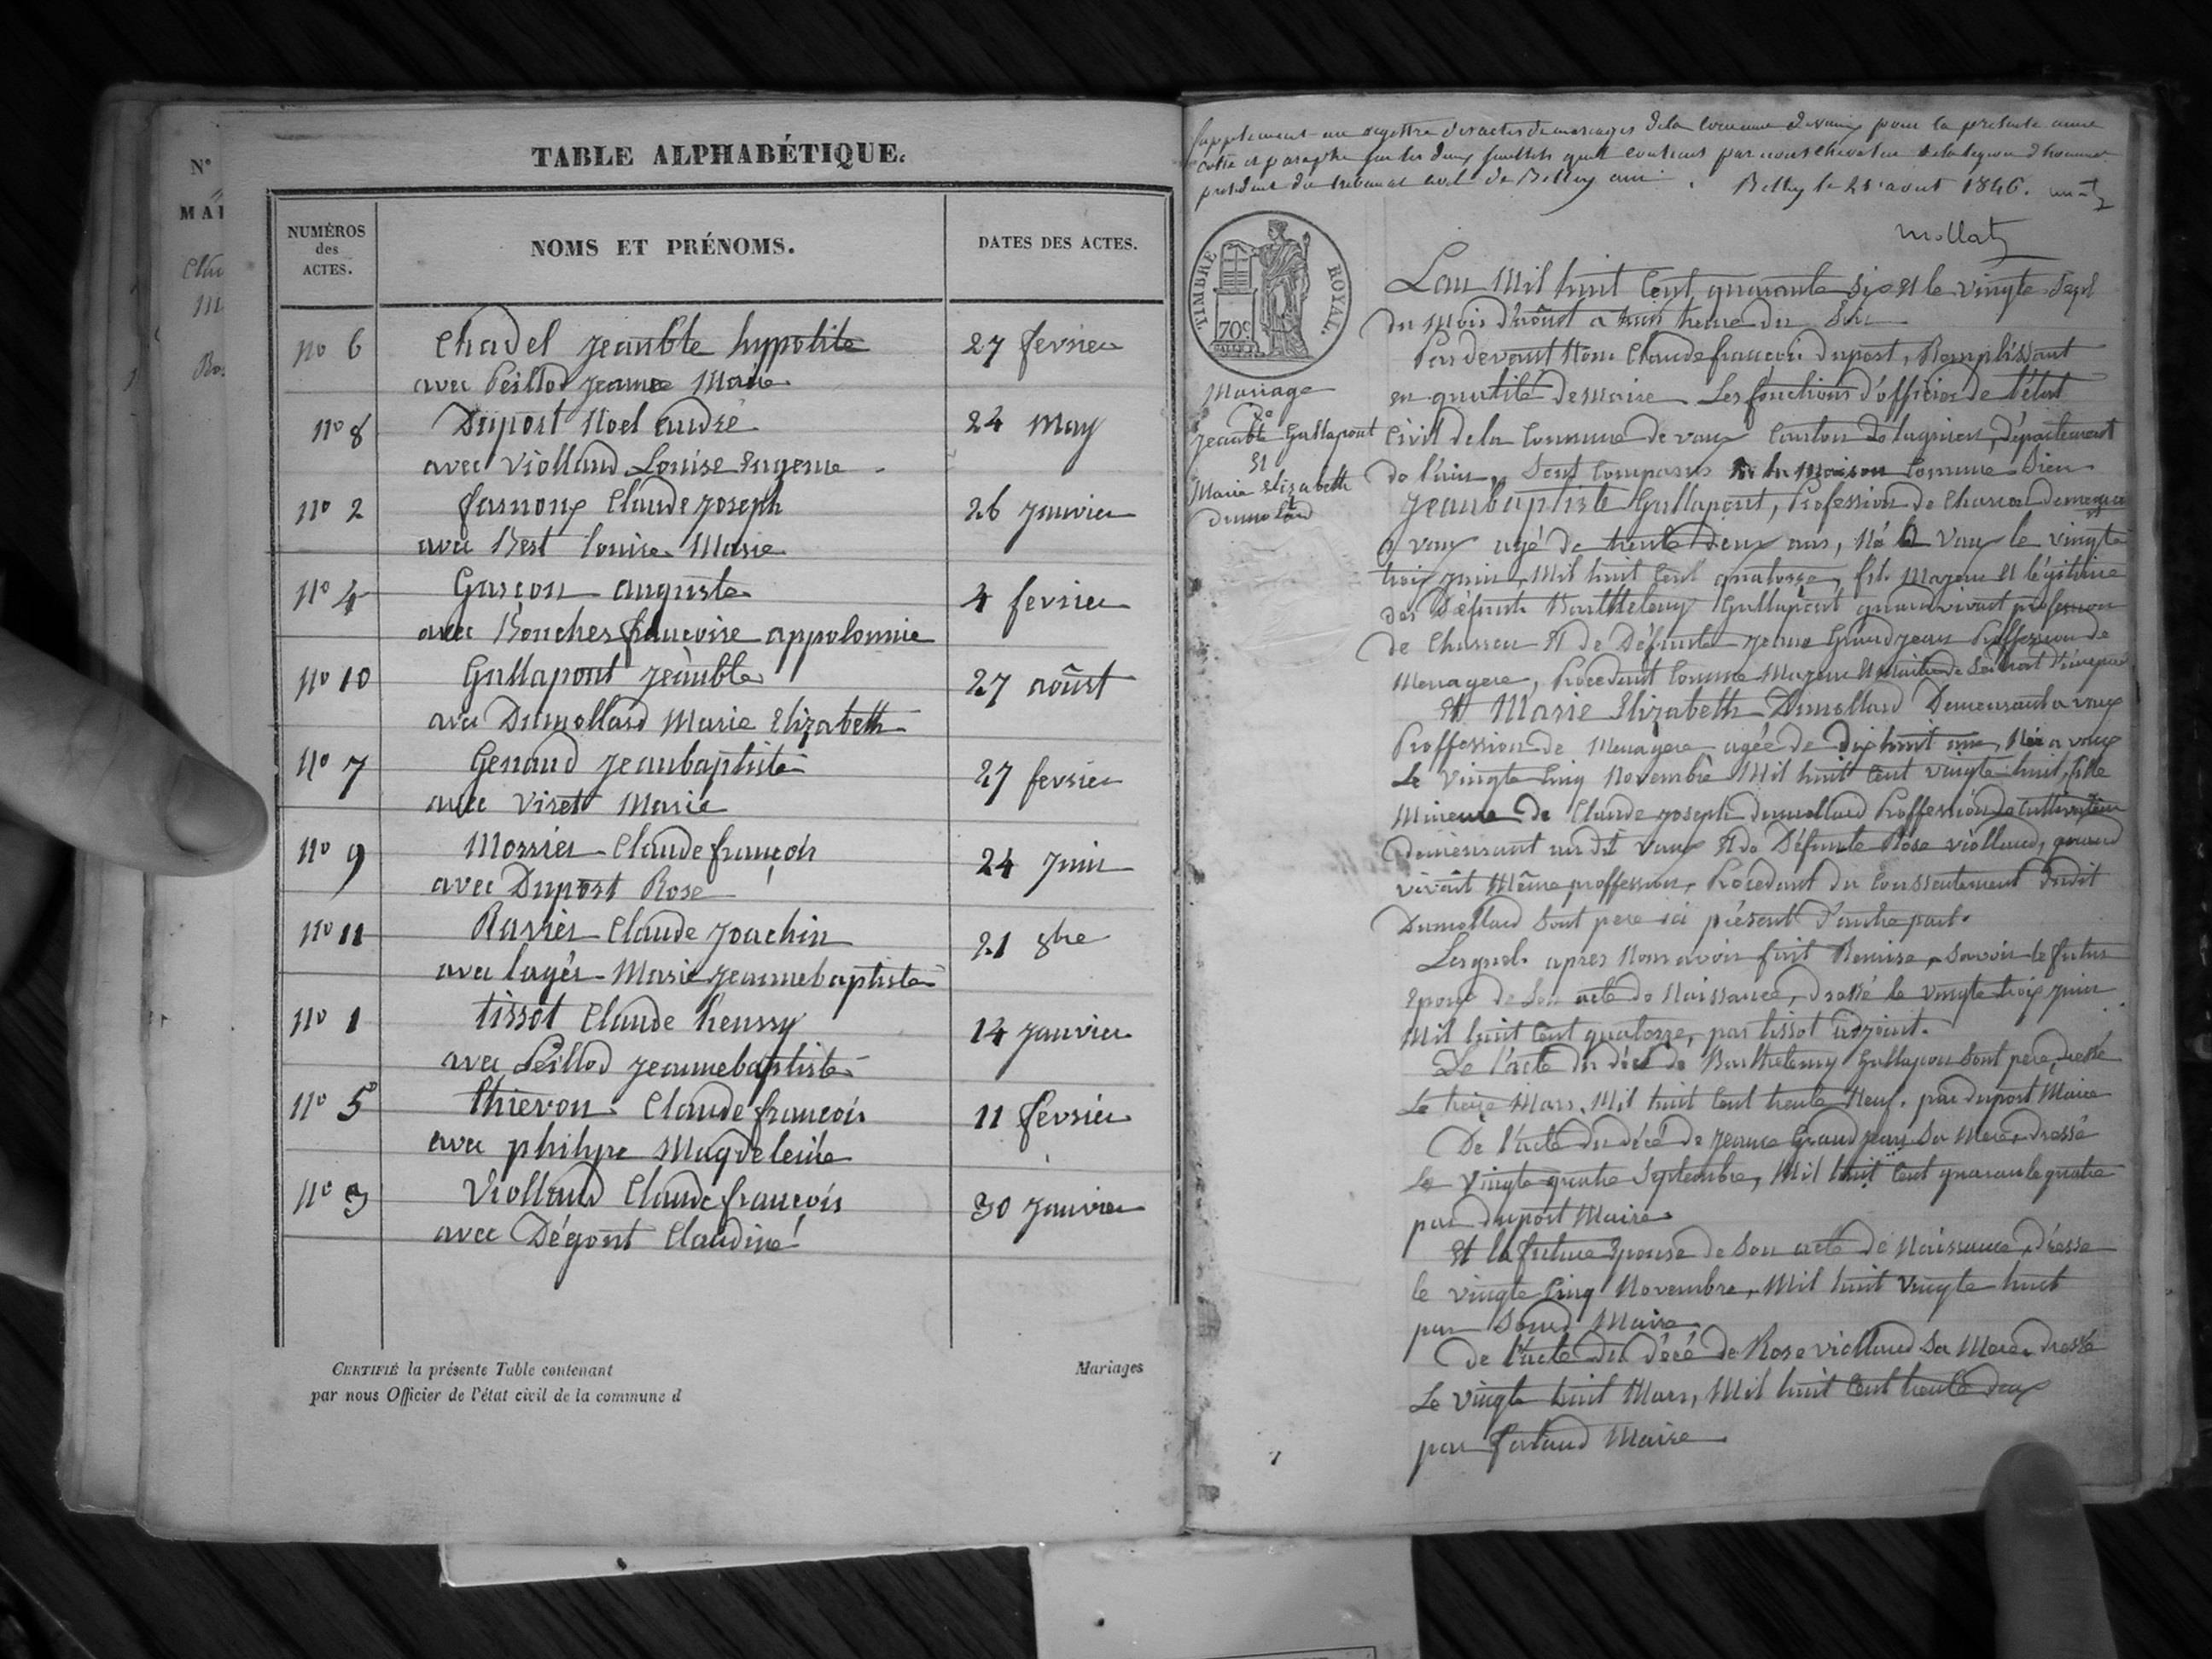 N°
MAI
TABLE ALPHABÉTIQUE.
NUMÉROS
des
ACTES.
NOMS ET PRÉNOMS.
DATES DES ACTES.
no 6 Chadel jeanbte hypolite 27 fevrier
avec Peillod jeanne Marie
no 8 Dupost Noel andré 24 May
avec Violland Louise Eugenie
no 2 farnoux Claude joseph 26 janvier
avec Best louise Marie
no 4 Garçon auguste 4 fevrier
avec Bouches francoise appolonnie
no 10 Gallapont jeanbte 27 août
avec Dumollard Marie Elizabeth
no 7 Genand jeanbaptiste 27 fevrier
avec Viret Marie
no 9 Morrier Claude françois 24 juin
avec Dupost Rose
no 11 Ravier Claude joachin 21 8bre
avec lagér Marie jeannebaptiste
no 1 tissot Claude henry 14 janvier
avec Peillod jeannebaptiste
no 5 thievon Claude francois 11 février
avec philipe Magdeleine
no 3 Violland Claude françois 30 janvier
avec Dégont Claudine
CERTIFIÉ la présente Table contenant Mariages
par nous Officier de l'état civil de la commune d
Supplement au registre des actes de mariages de la commune de vaux pour la présente année
coté et paraphé sur les deux feuillets qu'il contient par nous chevalier de la legion d'honneur
president du tribunal civil de Belley ain. Belley le 21 aout 1846.
Mollat
TIMBRE ROYAL.
70c
Mariage
De
jeanbte Gallapont
Et
Marie Elizabeth
Dumolard
Lan Mil huit Cent quarante six Et le vingte Sept
du Mois d'août a huit heure du Soir
Pardevant Nous Claude françois dupost, Remplissant
en qualité de maire Les fonctions d'officier de l'état
Civil de la Commune de vaux Canton de lagnieu, département
de l'ain, Sont Comparus la Maison Commune Sieur
jeanbaptiste Gallapont, Profession de Chareon Demeurant
a vaux agé de trente deux ans, Né a Vaux le vingte
trois juin, Mil huit Cent quatorze, fils Majeur Et légitime
des Défunts Barthelemy Gallapont quand vivait profession
de Charreu Et de Défunte jeanne Grandjean Proffession de
Menagere, Procedant Comme Majeur Et Maitre de Ses
Et Marie Elizabeth Dumollard Demeurant a vaux
Proffession de Menagere agée de dixhuit ans, Née a vaux
Le Vingte Cinq Novembre Mil huit Cent vingte huit, fille
Mineure De Claude joseph dumollard Proffession de Cultivateur
demeurant au dit Vaux Et de Défunte Rose violland, quand
vivait Même proffession, Procedant du Conssentement dudit
Dumollard Sont pere ici présent D'autre part.
Lesquels apres Nous avoir fait Remise, Savoir le futur
Epoux de Son acte de Naissance, dressé le vingte trois juin
Mil huit Cent quatorze, par tissot adjoint.
De l'acte du décé de Barthelemy Gallapon Sont pere, dressé
Le treize Mars, Mil huit Cent trente Neuf. par dupost Maire
De l'acte du décé de jeanne Grandjean Sa Mere, dressé
Le Vingte quatre Septembre, Mil huit Cent quarante quatre
par dupost Maire
Et la future Epouse de Son acte de Naissance, dressé
le vingte Cinq Novembre, Mil huit vingte huit
par Maire
De l'acte du décé de Rose violland Sa Mere dressé
Le Vingte huit Mars, Mil huit Cent trente deux
par ferland Maire